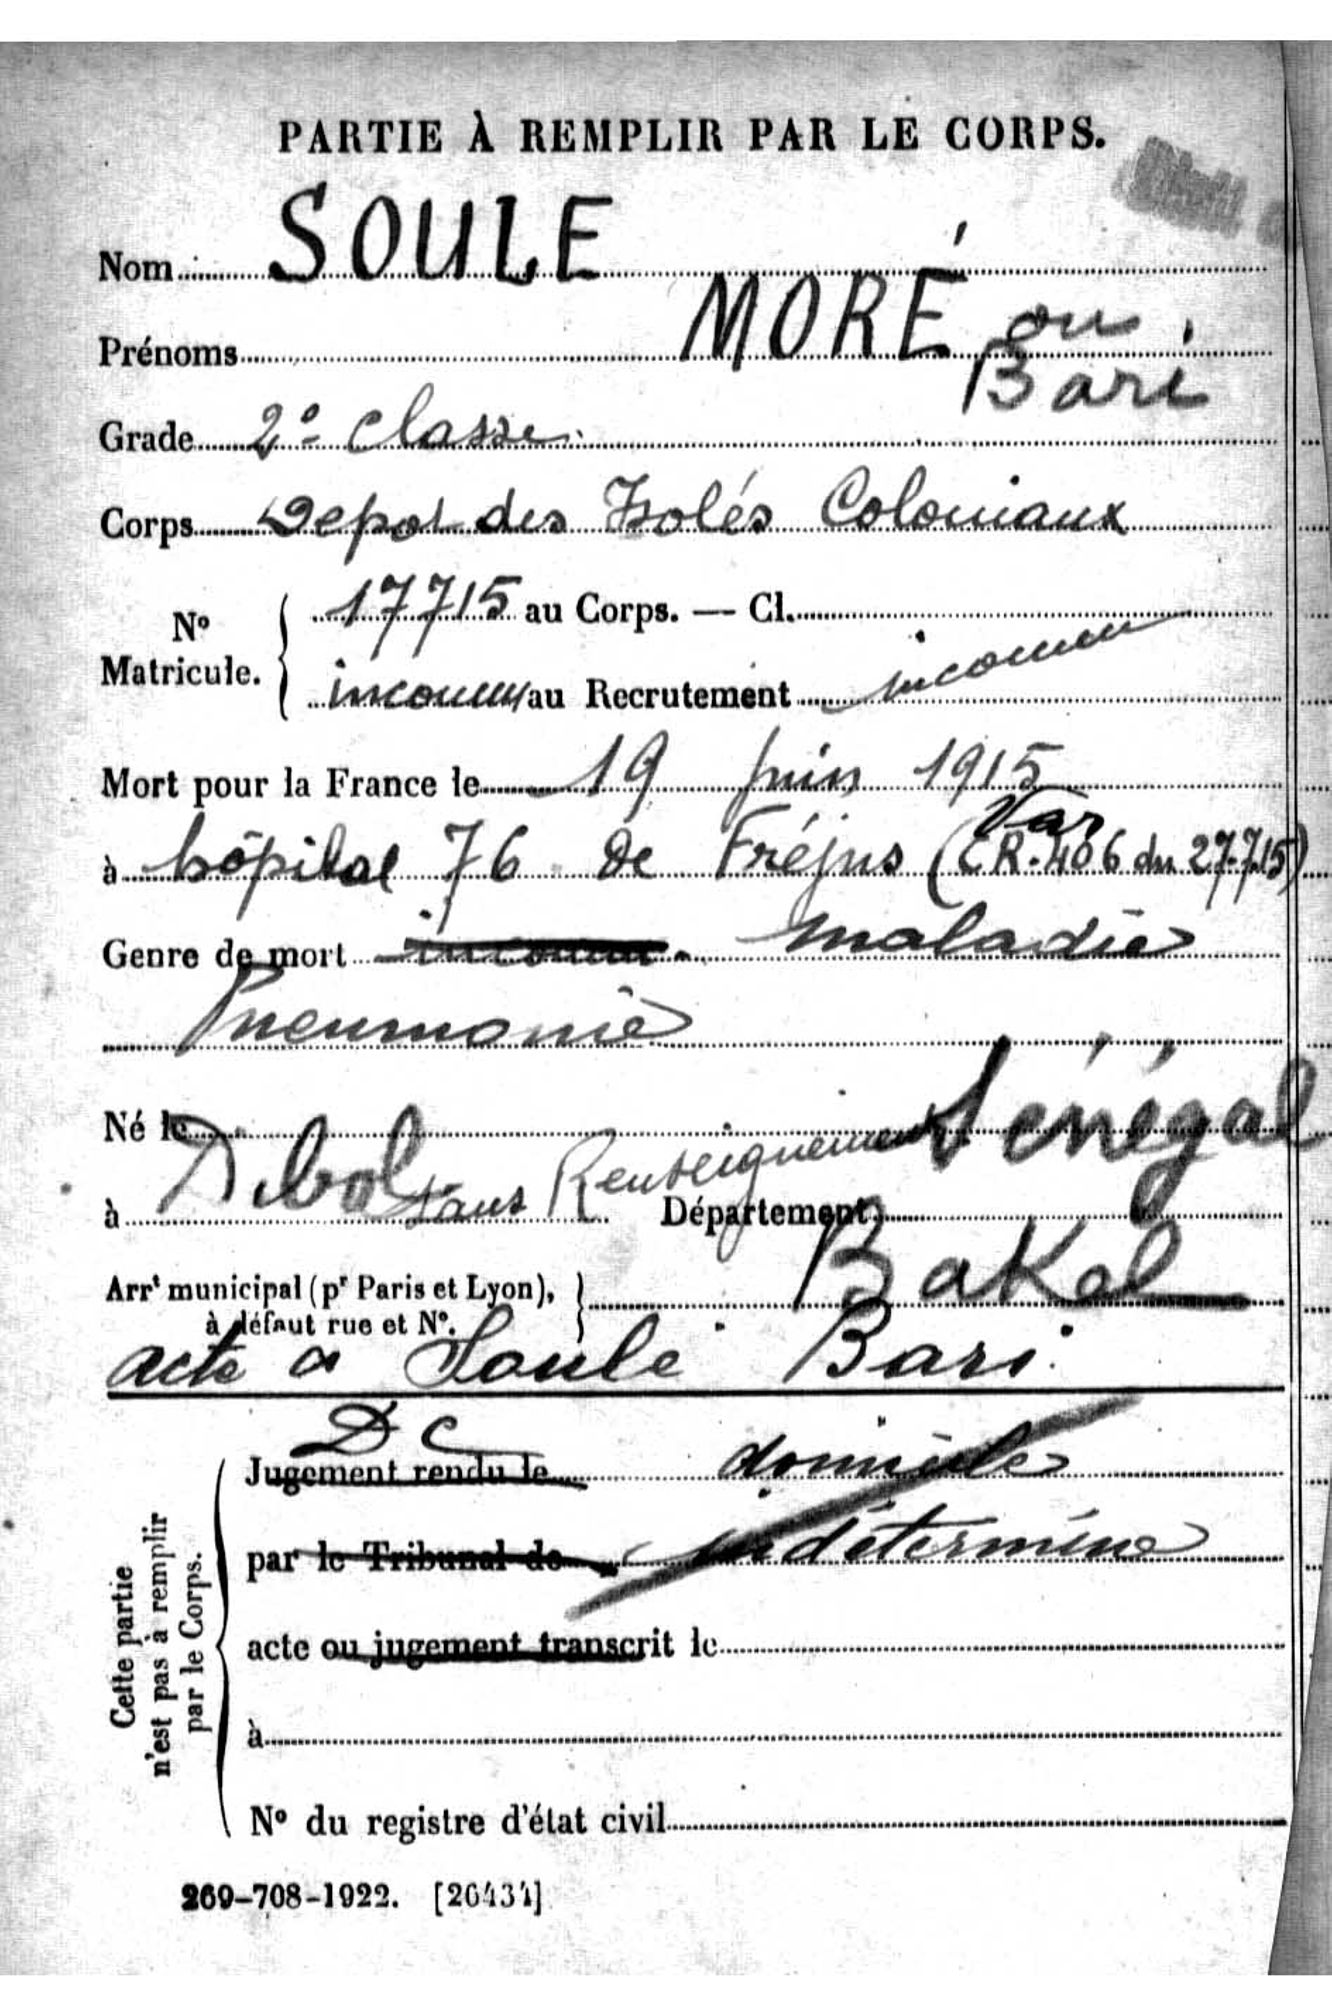 PARTIE À REMPLIR PAR LE CORPS.
Nom SOULE
Prénoms MORÉ ou
Bari
Grade 2e classe
Corps Depot des Isolés Coloniaux
No Matricule. 17715 au Corps. — Cl.
inconnu au Recrutement inconnu
Mort pour la France le 19 juin 1915
Var
à hôpital 76 de Fréjus (CR. 406 du 27.7.15)
Genre de mort inconnu. maladie
Pneumonie
Né le Sénégal
à Dibol Sans Renseignements Département
Bakel
Arrt municipal (pr Paris et Lyon),
à défaut rue et No.
acte a Soulé Bari
DC
Jugement rendu le domicile
par le Tribunal de indéterminé
acte ou jugement transcrit le
à
No du registre d'état civil
Cette partie
n'est pas à remplir
par le Corps.
269-708-1922. [26434]